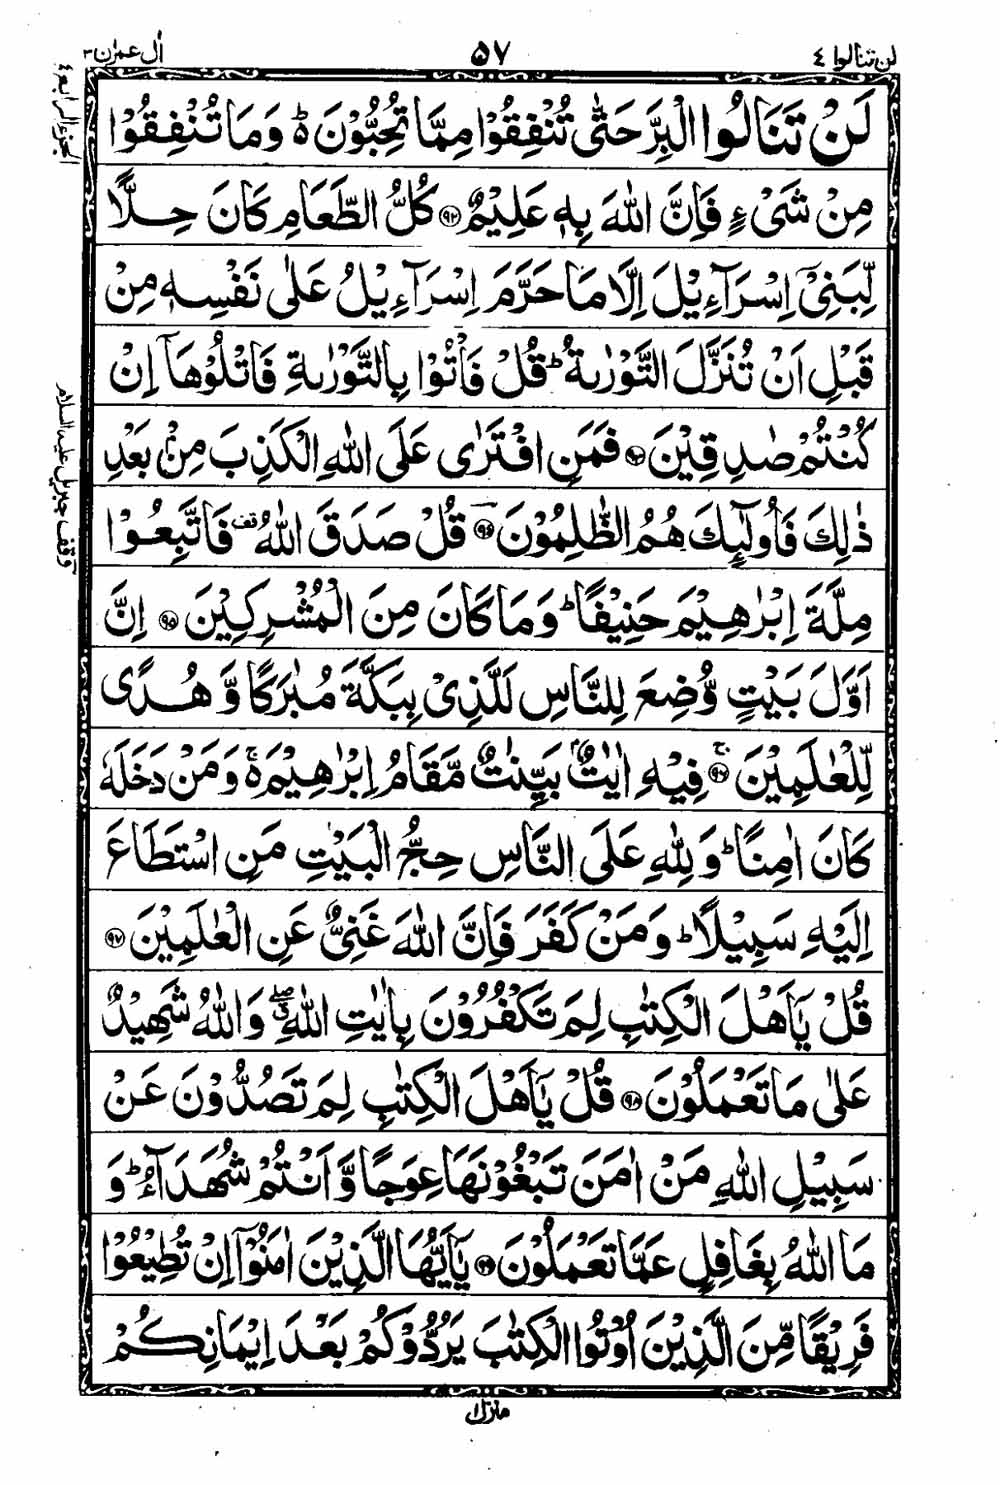 لن تنالوا ٤
٥٧
اٰل عمرٰن ٣
الجزء الرابع ٤
لَنْ تَنَالُوا الْبِرَّ حَتّٰى تُنْفِقُوْا مِمَّا تُحِبُّوْنَ ۬ؕ وَمَا تُنْفِقُوْا
مِنْ شَىْءٍ فَاِنَّ اللّٰهَ بِهٖ عَلِيْمٌ ﴿٩٢﴾ كُلُّ الطَّعَامِ كَانَ حِلًّا
لِّبَنِىْۤ اِسْرَآءِيْلَ اِلَّا مَا حَرَّمَ اِسْرَآءِيْلُ عَلٰى نَفْسِهٖ مِنْ
قَبْلِ اَنْ تُنَزَّلَ التَّوْرٰىةُ ؕ قُلْ فَاْتُوْا بِالتَّوْرٰىةِ فَاتْلُوْهَاۤ اِنْ
كُنْتُمْ صٰدِقِيْنَ ﴿٩٣﴾ فَمَنِ افْتَرٰى عَلَى اللّٰهِ الْكَذِبَ مِنْۢ بَعْدِ
ذٰلِكَ فَاُولٰٓئِكَ هُمُ الظّٰلِمُوْنَ ﴿٩٤﴾ قُلْ صَدَقَ اللّٰهُ قف فَاتَّبِعُوْا
مِلَّةَ اِبْرٰهِيْمَ حَنِيْفًا ؕ وَمَا كَانَ مِنَ الْمُشْرِكِيْنَ ﴿٩٥﴾ اِنَّ
اَوَّلَ بَيْتٍ وُّضِعَ لِلنَّاسِ لَلَّذِىْ بِبَكَّةَ مُبٰرَكًا وَّ هُدًى
لِّلْعٰلَمِيْنَ ﴿٩٦﴾ۚ فِيْهِ اٰيٰتٌۢ بَيِّنٰتٌ مَّقَامُ اِبْرٰهِيْمَ ۬ۚ وَمَنْ دَخَلَهٗ
كَانَ اٰمِنًا ؕ وَلِلّٰهِ عَلَى النَّاسِ حِجُّ الْبَيْتِ مَنِ اسْتَطَاعَ
اِلَيْهِ سَبِيْلًا ؕ وَمَنْ كَفَرَ فَاِنَّ اللّٰهَ غَنِىٌّ عَنِ الْعٰلَمِيْنَ ﴿٩٧﴾
قُلْ يٰۤاَهْلَ الْكِتٰبِ لِمَ تَكْفُرُوْنَ بِاٰيٰتِ اللّٰهِ ۖ وَاللّٰهُ شَهِيْدٌ
عَلٰى مَا تَعْمَلُوْنَ ﴿٩٨﴾ قُلْ يٰۤاَهْلَ الْكِتٰبِ لِمَ تَصُدُّوْنَ عَنْ
سَبِيْلِ اللّٰهِ مَنْ اٰمَنَ تَبْغُوْنَهَا عِوَجًا وَّ اَنْتُمْ شُهَدَآءُ ؕ وَ
مَا اللّٰهُ بِغَافِلٍ عَمَّا تَعْمَلُوْنَ ﴿٩٩﴾ يٰۤاَيُّهَا الَّذِيْنَ اٰمَنُوْۤا اِنْ تُطِيْعُوْا
فَرِيْقًا مِّنَ الَّذِيْنَ اُوْتُوا الْكِتٰبَ يَرُدُّوْكُمْ بَعْدَ اِيْمَانِكُمْ
وقف جبريل عليه السلام
منزل ١